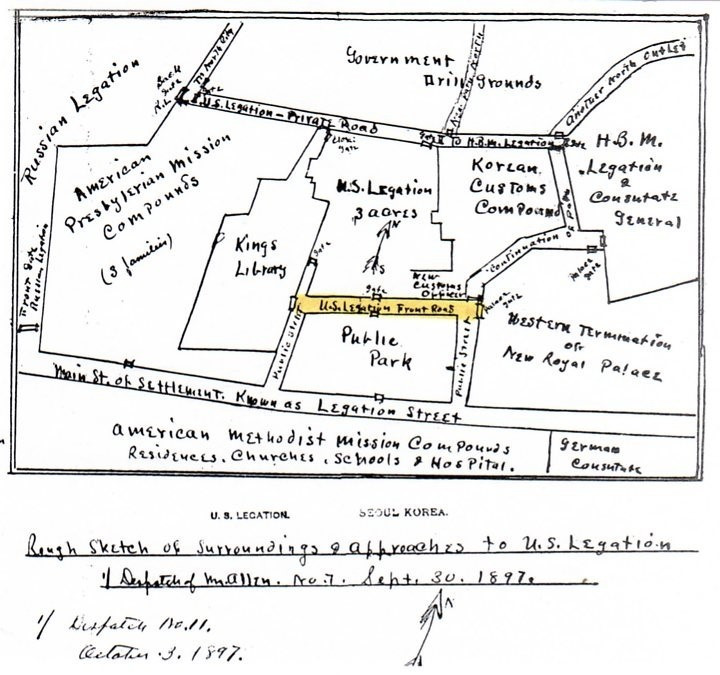 Government
Drill Grounds
Another North Outlet
Russian Legation
Gate
U.S. Legation - Private Road
Gate
To H.B.M. Legation
Gate
H.B.M.
Legation
&
Consulate
General
American
Presbyterian Mission
Compounds
(3 families)
Gate
U.S. Legation
3 acres
N
S
Korean
Customs
Compound
Continuation of Path
Kings
Library
Gate
New
Customs
Offices
Gate
Palace
Gate
Palace
Gate
Front Gate
Russian Legation
U.S. Legation Front Road
Public Street
Public
Park
Public Street
Western Termination
of
New Royal Palace
Main St. of Settlement. Known as Legation Street
American Methodist Mission Compounds
Residences, Churches, Schools & Hospital.
German
Consulate
U. S. LEGATION.
SEOUL KOREA.
Rough Sketch of Surroundings & approaches to U.S. Legation
1/ Despatch of Mr. Allen. No. 7. Sept. 30. 1897.
N
1/ Despatch No. 11.
October 3. 1897.